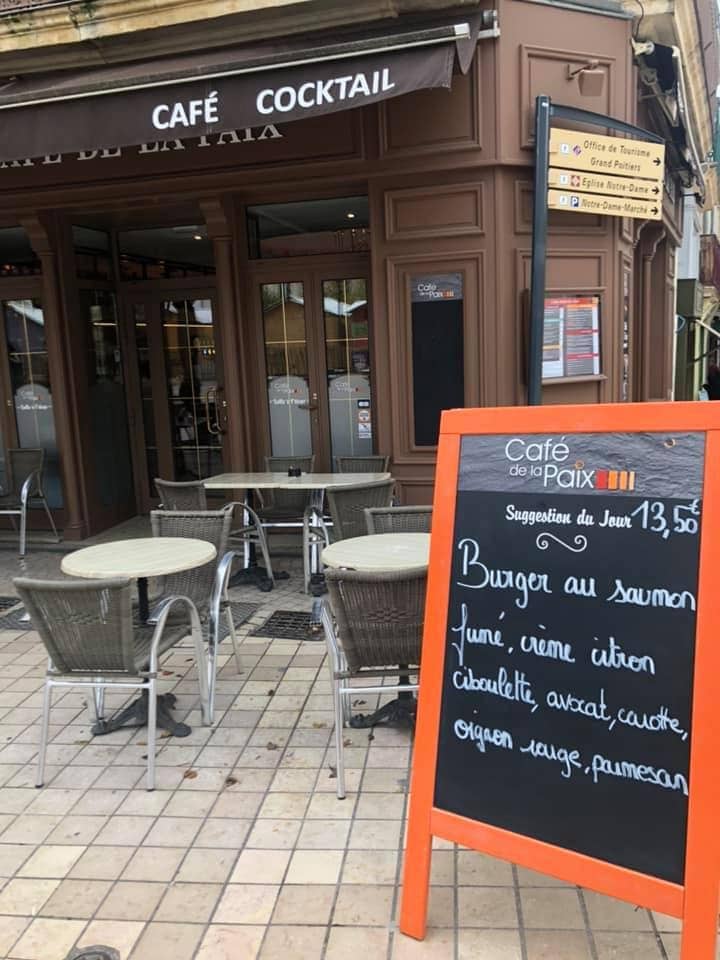 CAFÉ COCKTAIL
CAFÉ DE LA PAIX
Office de Tourisme
Grand Poitiers
Eglise Notre-Dame
P Notre-Dame-Marché
Café
de la Paix
Café
de la Paix
Café
de la Paix
Café
de la Paix
Suggestion du Jour 13,50€
Burger au saumon
fumé, crème citron
ciboulette, avocat, carotte,
oignon rouge, parmesan